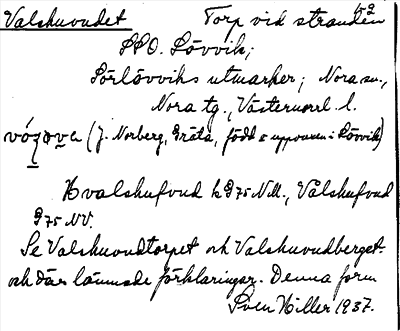 Valshuvudet Torp vid stranden
SSO. Lövvik;
Sörlövviks utmarker; Nora sn.,
Nora tg., Västernorrl. l.
(J. Norberg, Gräta, född o uppvuxen i Lövvik)
Hvalshufvud k G75 N.M., Vålshufvud
G75 NV.
Se Valshuvudtorpet och Valshuvudberget
och där lämnade förklaringar. Denna form
Sven Hiller 1937.